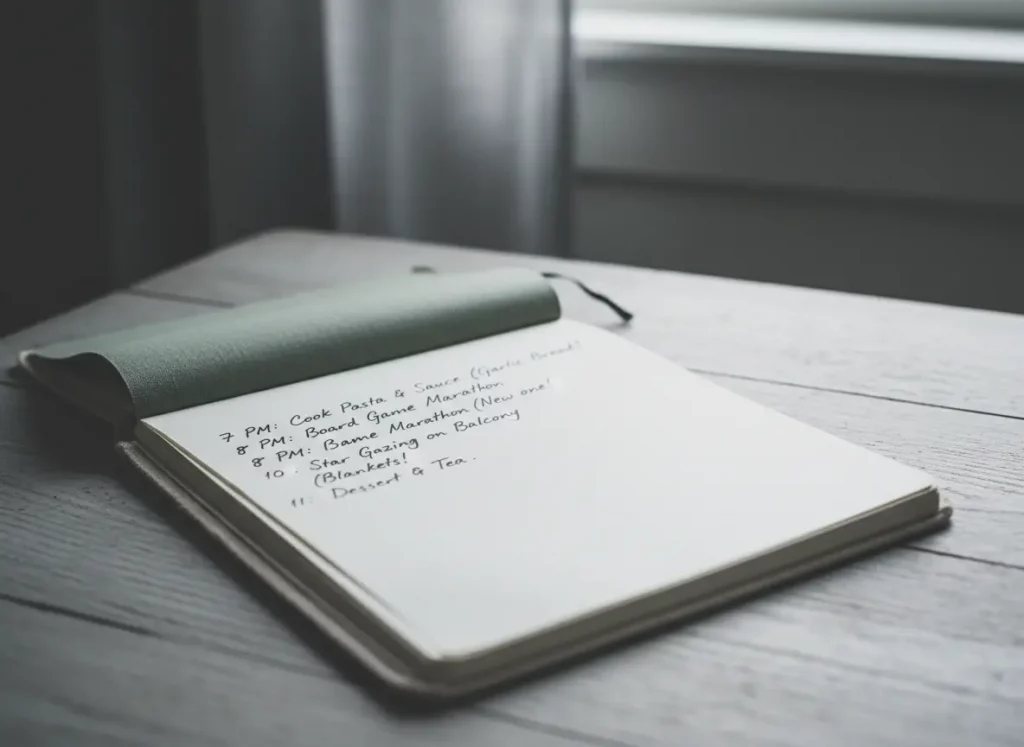 7 PM: Cook Pasta & Sauce (Garlic Bread!
8 PM: Board Game Marathon
8 PM: Bame Marathon (New one!
10 : Star Gazing on Balcony
(Blankets!
11: Dessert & Tea.